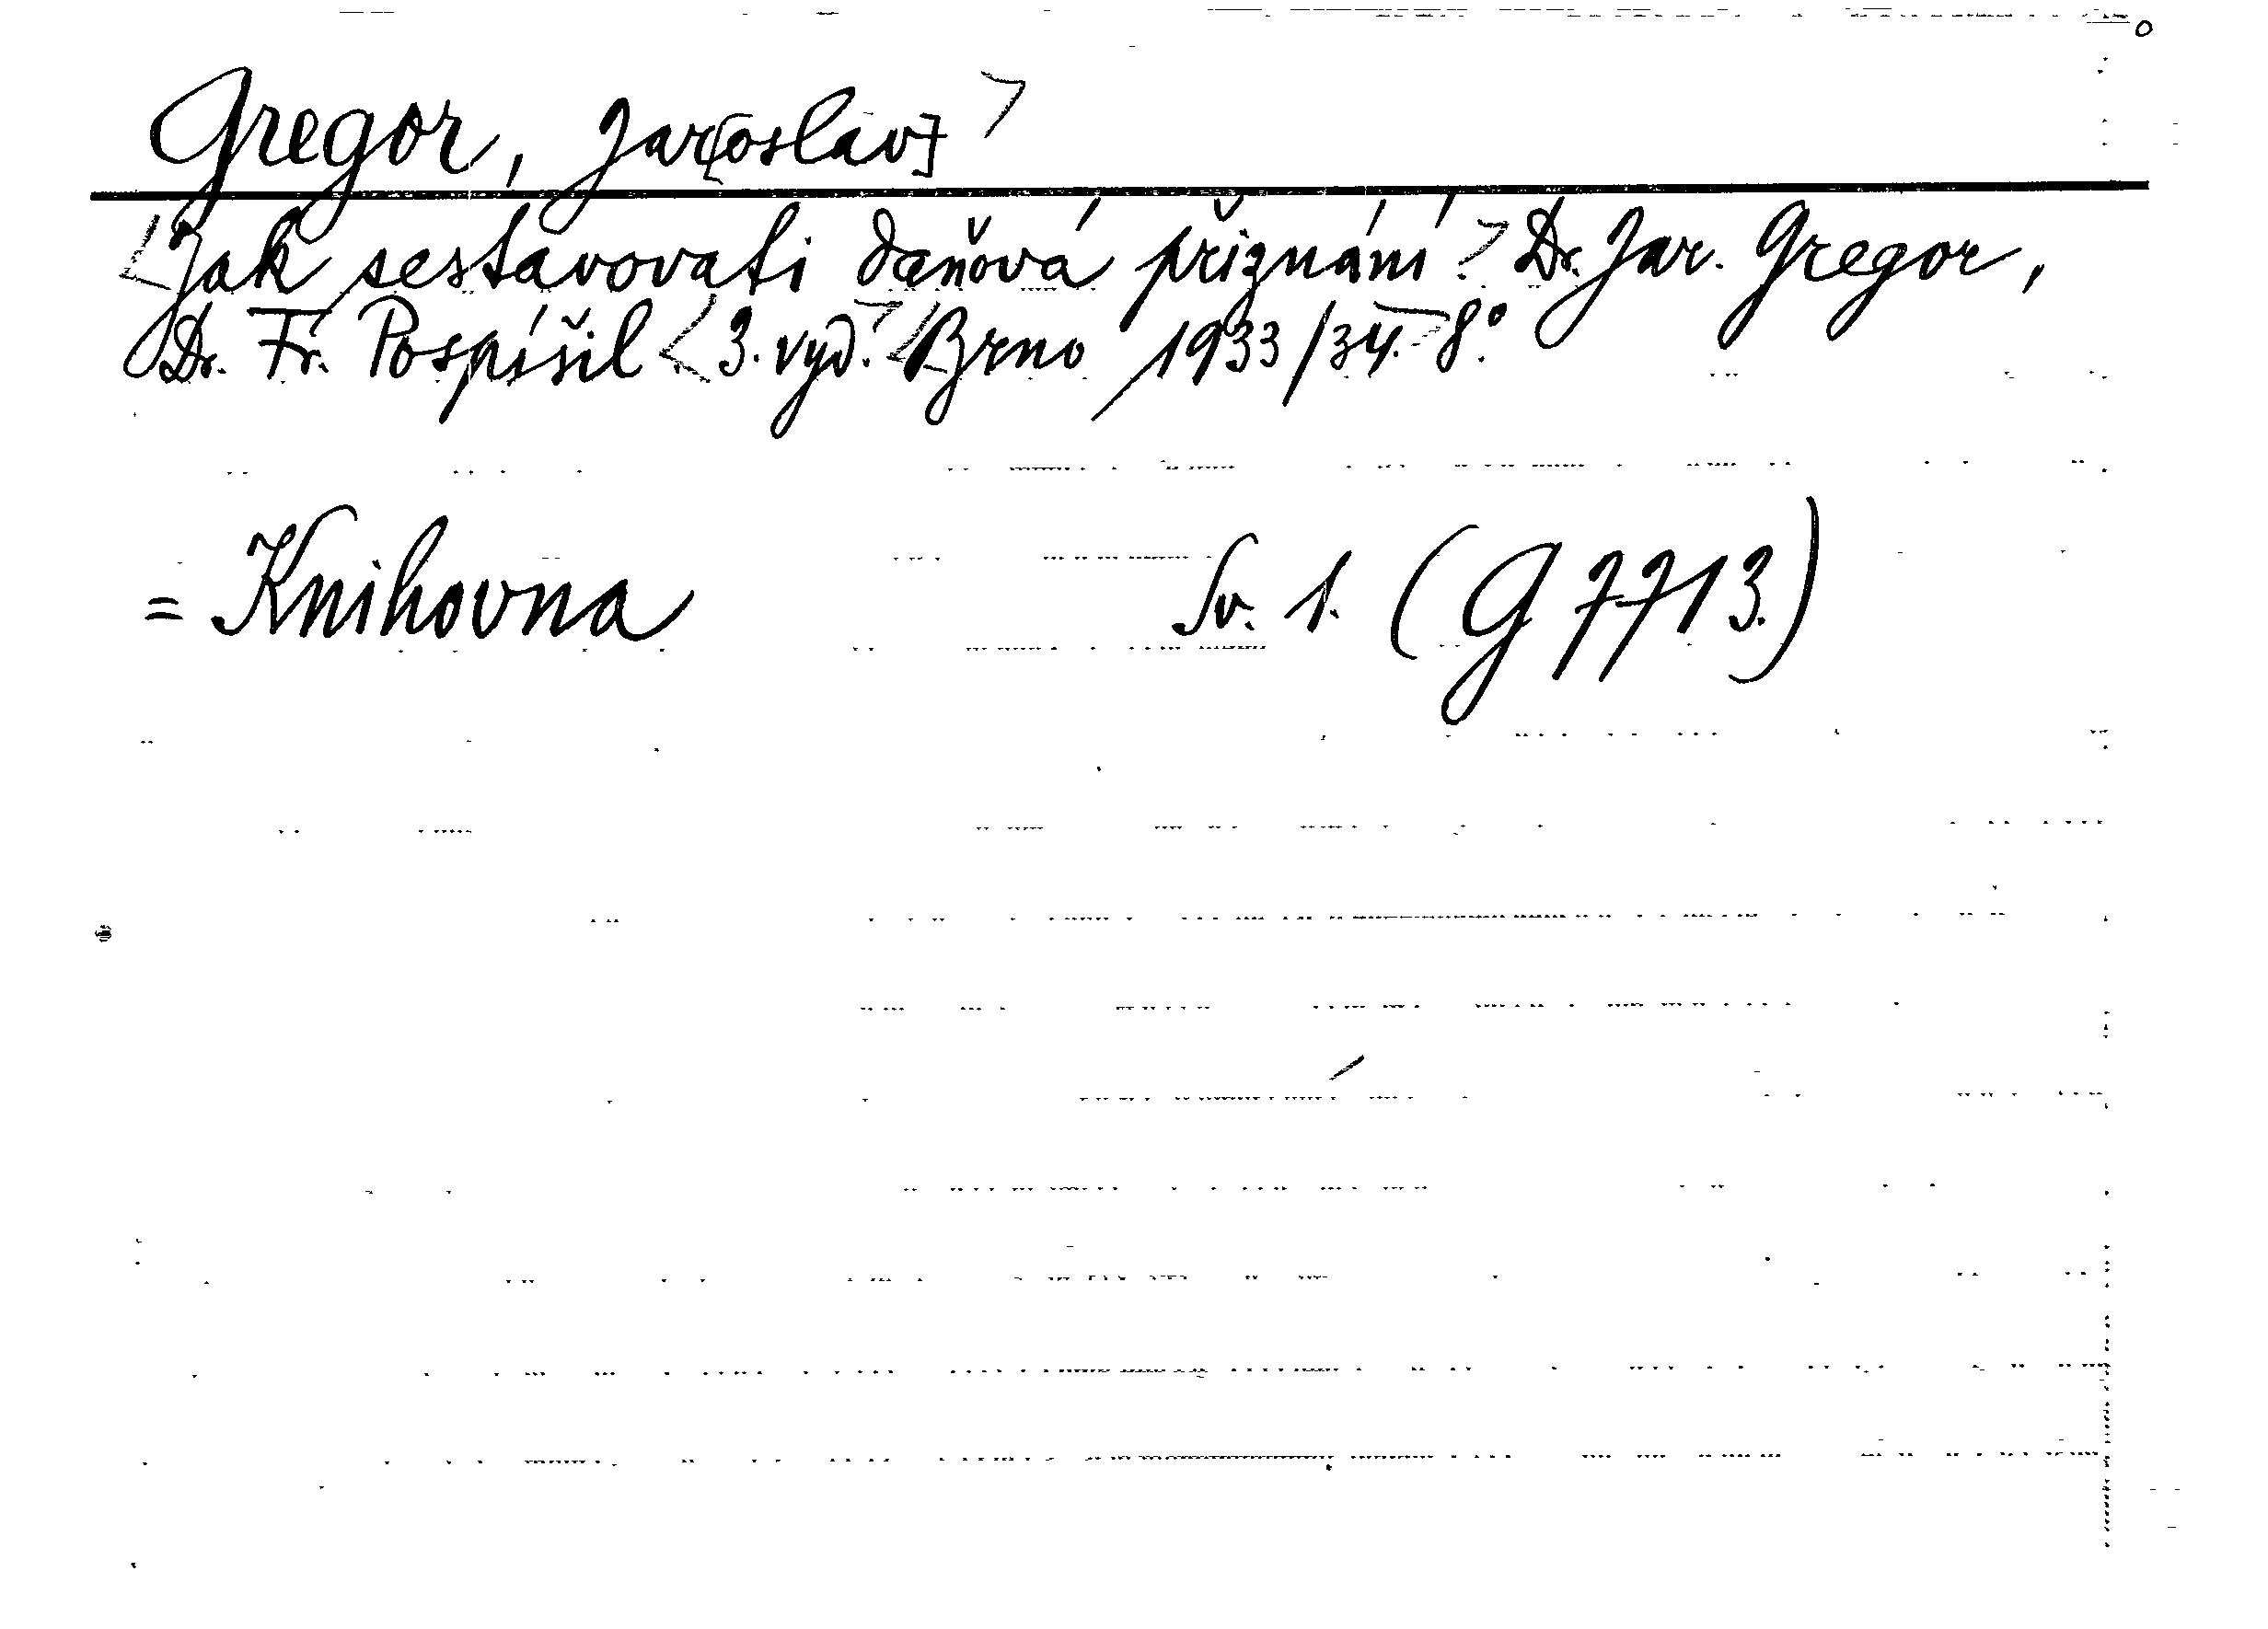 Gregor, Jar[oslav]>
<Jak sestavovati daňová přiznání?> Dr. Jar. Gregor,
Dr. Fr. Pospíšil <3. vyd.> <Brno 1933/34.> 8°.
= Knihovna Sv. 1. (G 7713.)